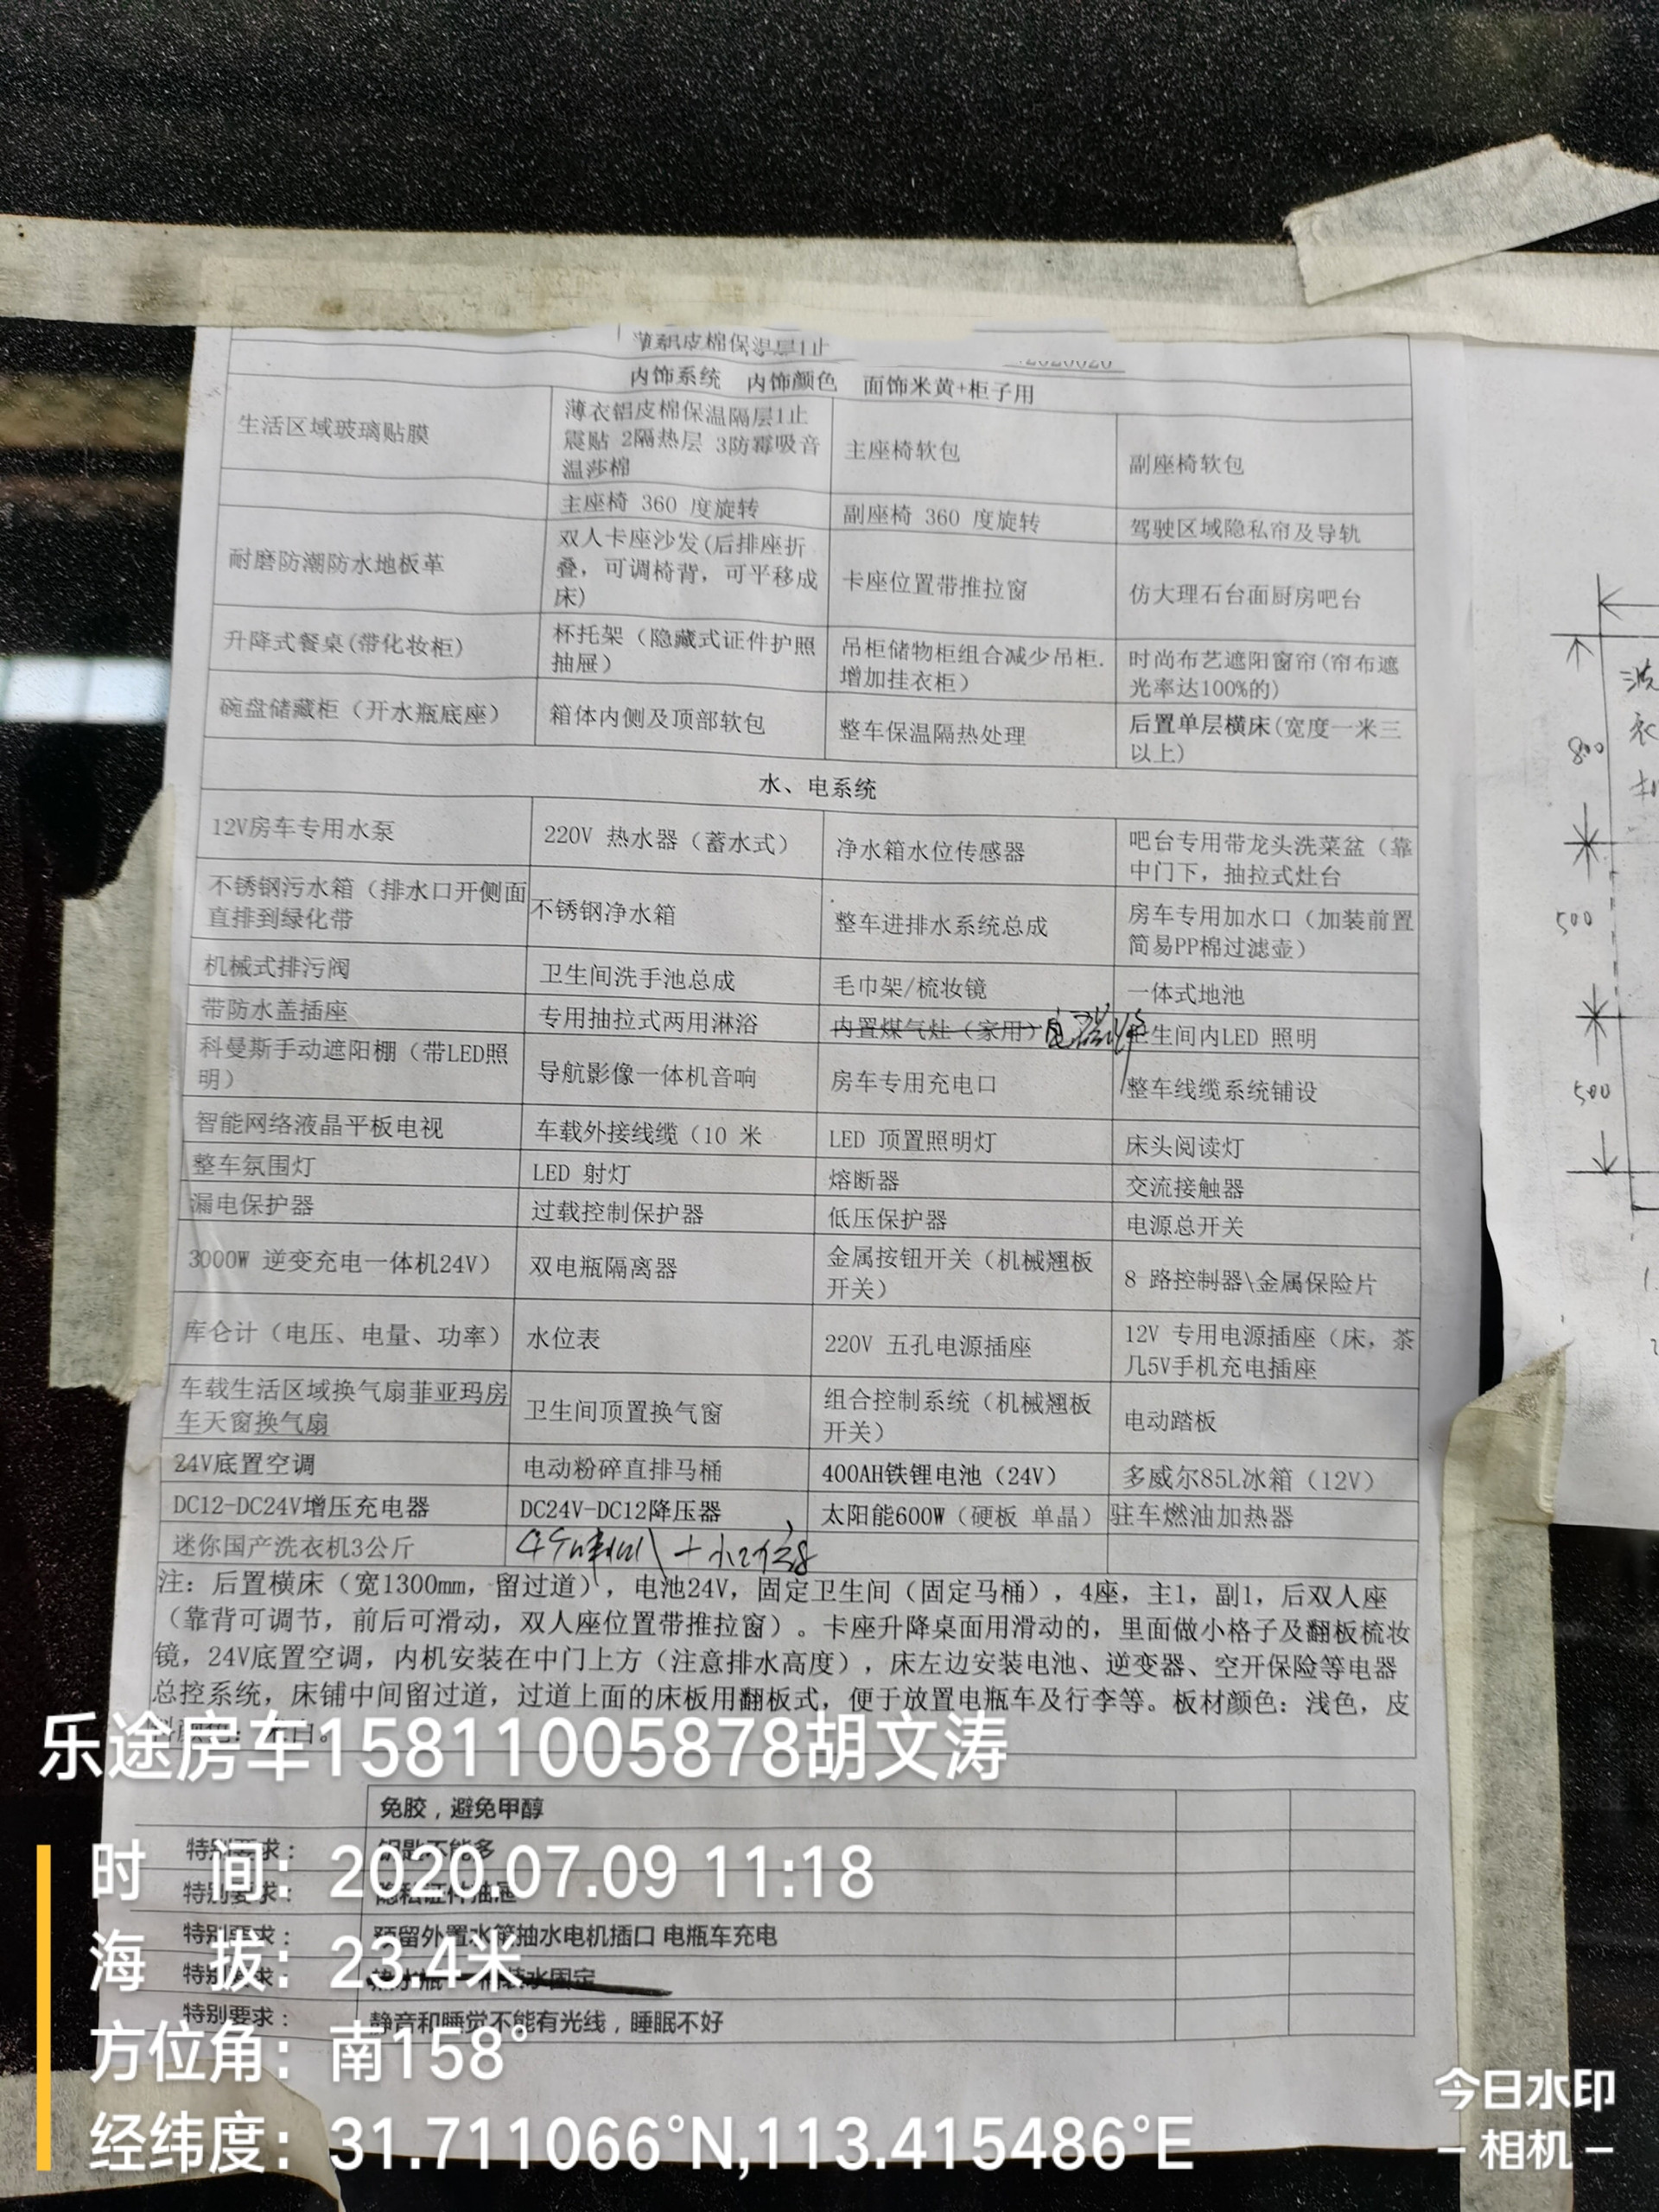 薄铝皮棉保温层1止
内饰系统 内饰颜色 面饰米黄+柜子用
生活区域玻璃贴膜
薄衣铝皮棉保温隔层1止
震贴 2隔热层 3防霉吸音
温莎棉
主座椅软包
副座椅软包
主座椅 360 度旋转
副座椅 360 度旋转
驾驶区域隐私帘及导轨
耐磨防潮防水地板革
双人卡座沙发(后排座折
叠，可调椅背，可平移成
床)
卡座位置带推拉窗
仿大理石台面厨房吧台
升降式餐桌(带化妆柜)
杯托架（隐藏式证件护照
抽屉）
吊柜储物柜组合减少吊柜.
增加挂衣柜）
时尚布艺遮阳窗帘(帘布遮
光率达100%的)
碗盘储藏柜（开水瓶底座）
箱体内侧及顶部软包
整车保温隔热处理
后置单层横床(宽度一米三
以上)
水、电系统
12V房车专用水泵
220V 热水器（蓄水式）
净水箱水位传感器
吧台专用带龙头洗菜盆（靠
中门下，抽拉式灶台
不锈钢污水箱（排水口开侧面
直排到绿化带
不锈钢净水箱
整车进排水系统总成
房车专用加水口（加装前置
简易PP棉过滤壶）
机械式排污阀
卫生间洗手池总成
毛巾架/梳妆镜
一体式地池
带防水盖插座
专用抽拉式两用淋浴
内置煤气灶（家用）电磁炉
卫生间内LED 照明
科曼斯手动遮阳棚（带LED照
明）
导航影像一体机音响
房车专用充电口
整车线缆系统铺设
智能网络液晶平板电视
车载外接线缆（10 米
LED 顶置照明灯
床头阅读灯
整车氛围灯
LED 射灯
熔断器
交流接触器
漏电保护器
过载控制保护器
低压保护器
电源总开关
3000W 逆变充电一体机24V）
双电瓶隔离器
金属按钮开关（机械翘板
开关）
8 路控制器\金属保险片
库仑计（电压、电量、功率）
水位表
220V 五孔电源插座
12V 专用电源插座（床，茶
几5V手机充电插座
车载生活区域换气扇菲亚玛房
车天窗换气扇
卫生间顶置换气窗
组合控制系统（机械翘板
开关）
电动踏板
24V底置空调
电动粉碎直排马桶
400AH铁锂电池（24V）
多威尔85L冰箱（12V）
DC12-DC24V增压充电器
DC24V-DC12降压器
太阳能600W（硬板 单晶）
驻车燃油加热器
迷你国产洗衣机3公斤
注：后置横床（宽1300mm，留过道），电池24V，固定卫生间（固定马桶），4座，主1，副1，后双人座
（靠背可调节，前后可滑动，双人座位置带推拉窗）。卡座升降桌面用滑动的，里面做小格子及翻板梳妆
镜，24V底置空调，内机安装在中门上方（注意排水高度），床左边安装电池、逆变器、空开保险等电器
总控系统，床铺中间留过道，过道上面的床板用翻板式，便于放置电瓶车及行李等。板材颜色：浅色，皮
乐途房车15811005878胡文涛
免胶，避免甲醇
特别要求：
钥匙不能多
特别要求：
隐私证件抽屉
特别要求：
预留外置水箱抽水电机插口 电瓶车充电
特别要求：
特别要求：
静音和睡觉不能有光线，睡眠不好
时 间：2020.07.09 11:18
海 拔：23.4米
方位角：南158°
经纬度：31.711066°N,113.415486°E
今日水印
相机
800
500
500